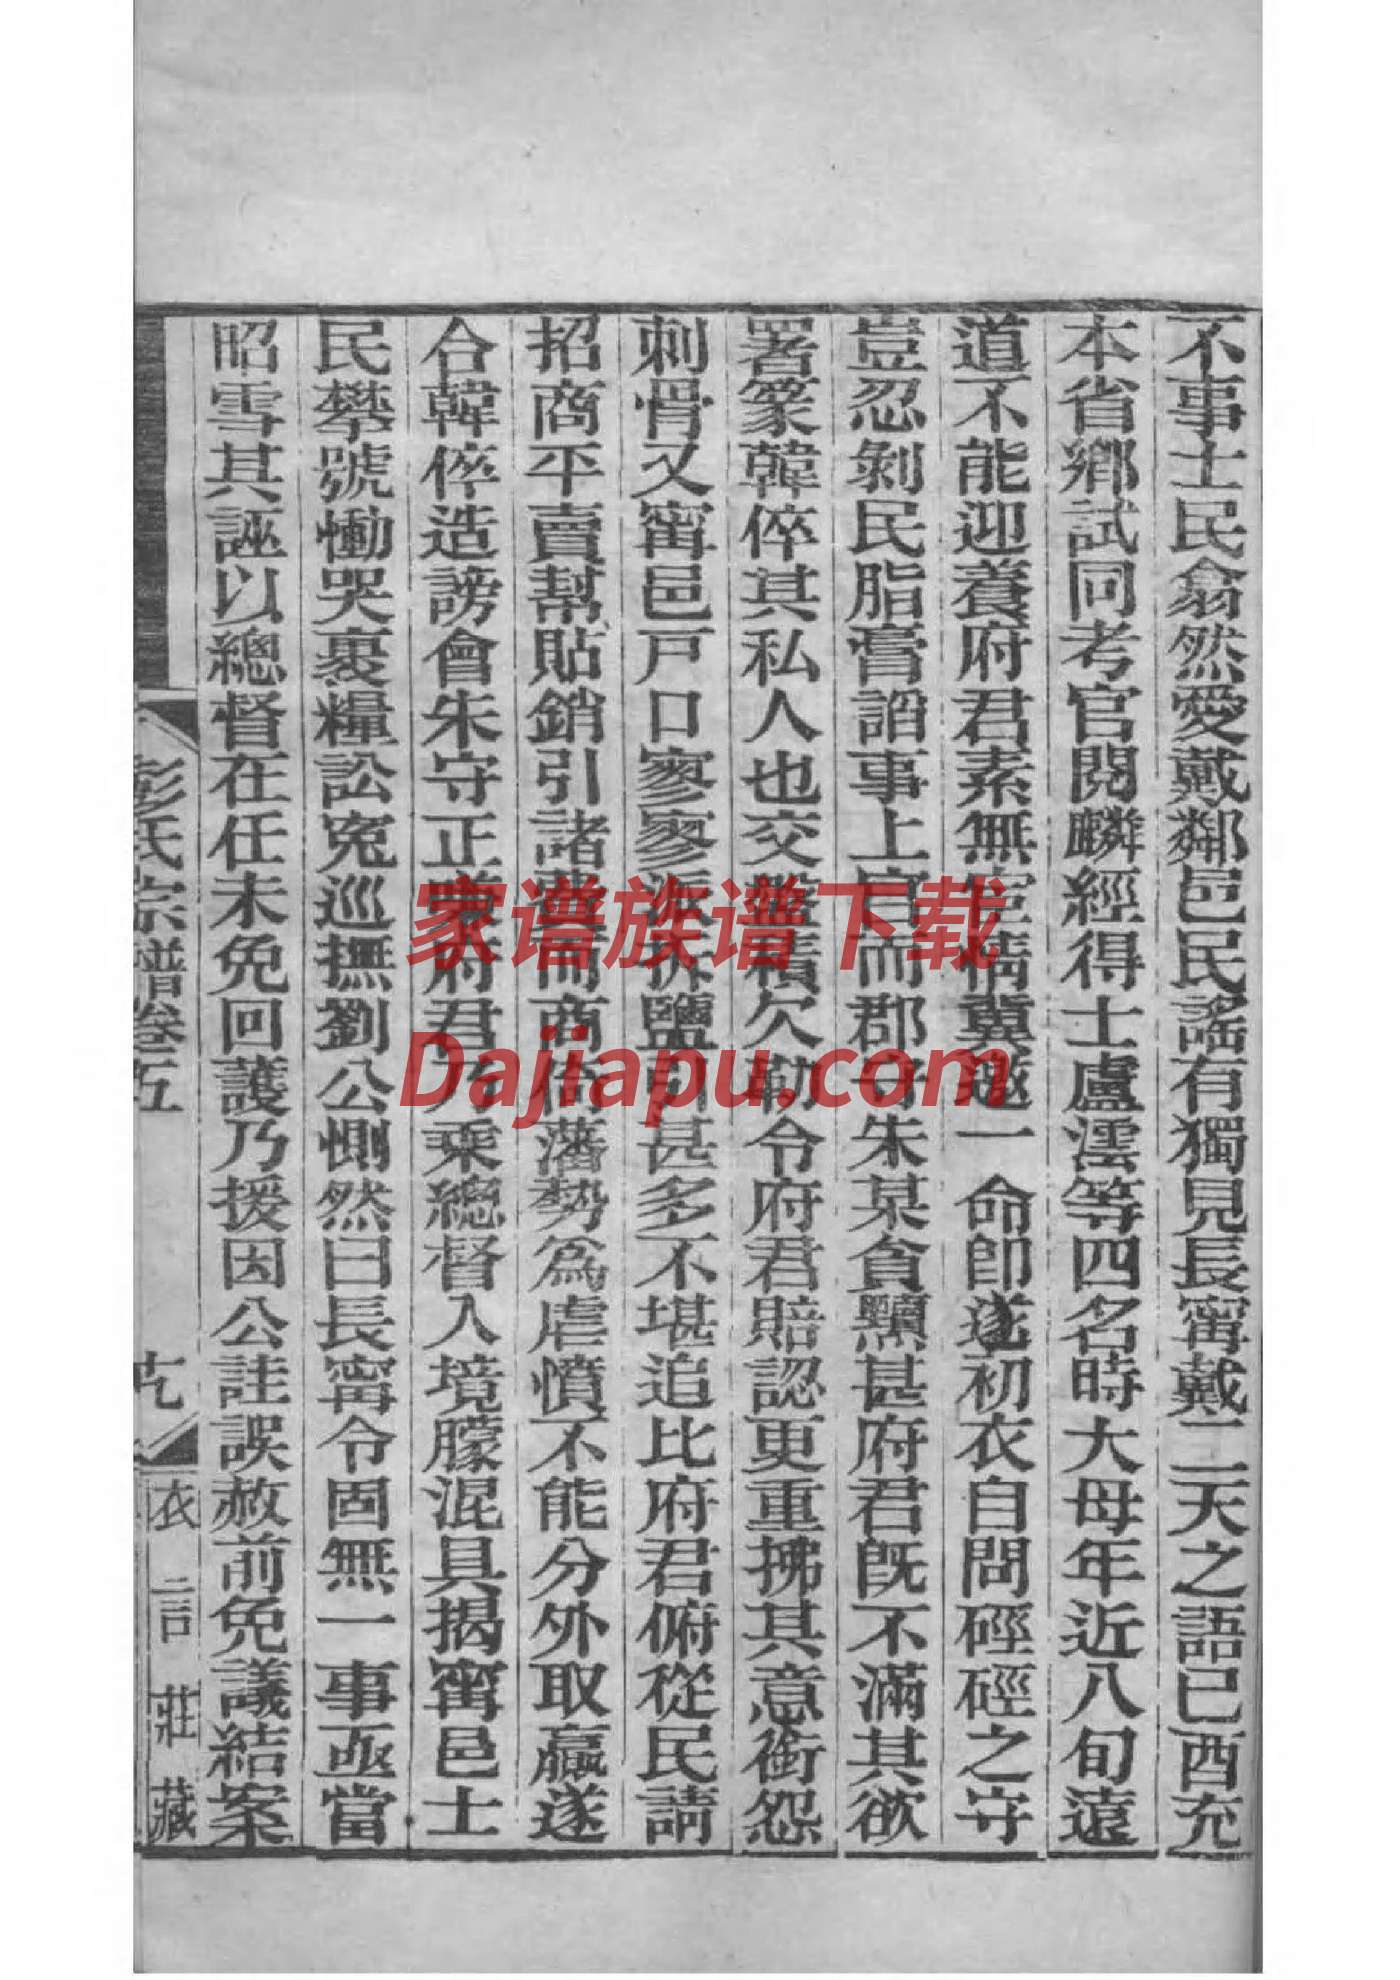 不事士民翕然愛戴鄰邑民謠有獨見長甯戴二天之語已酉充
本省鄉試同考官閱麟經得士盧澐等四名時大母年近八旬遠
道不能迎養府君素無宦情冀邀一命卽遂初衣自問硜硜之守
豈忍剝民脂膏諂事上官而郡守朱某貪黷甚府君旣不滿其欲
署篆韓倅其私人也交盤積欠勒令府君賠認更重拂其意銜怨
刺骨又甯邑戸口寥寥派拆鹽引甚多不堪追比府君俯從民請
招商平賣幇貼銷引諸 商倚藩勢爲虐憤不能分外取贏遂
合韓倅造謗會朱守正 府君乃乘總督入境朦混具揭甯邑士
民攀號慟哭裹糧訟寃巡撫劉公惻然曰長甯令固無一事亟當
昭雪其誣以總督在任未免回護乃援因公註誤赦前免議結案
彭氏宗譜卷五
十九
衣言莊藏
家谱族谱下载
Dajiapu.com